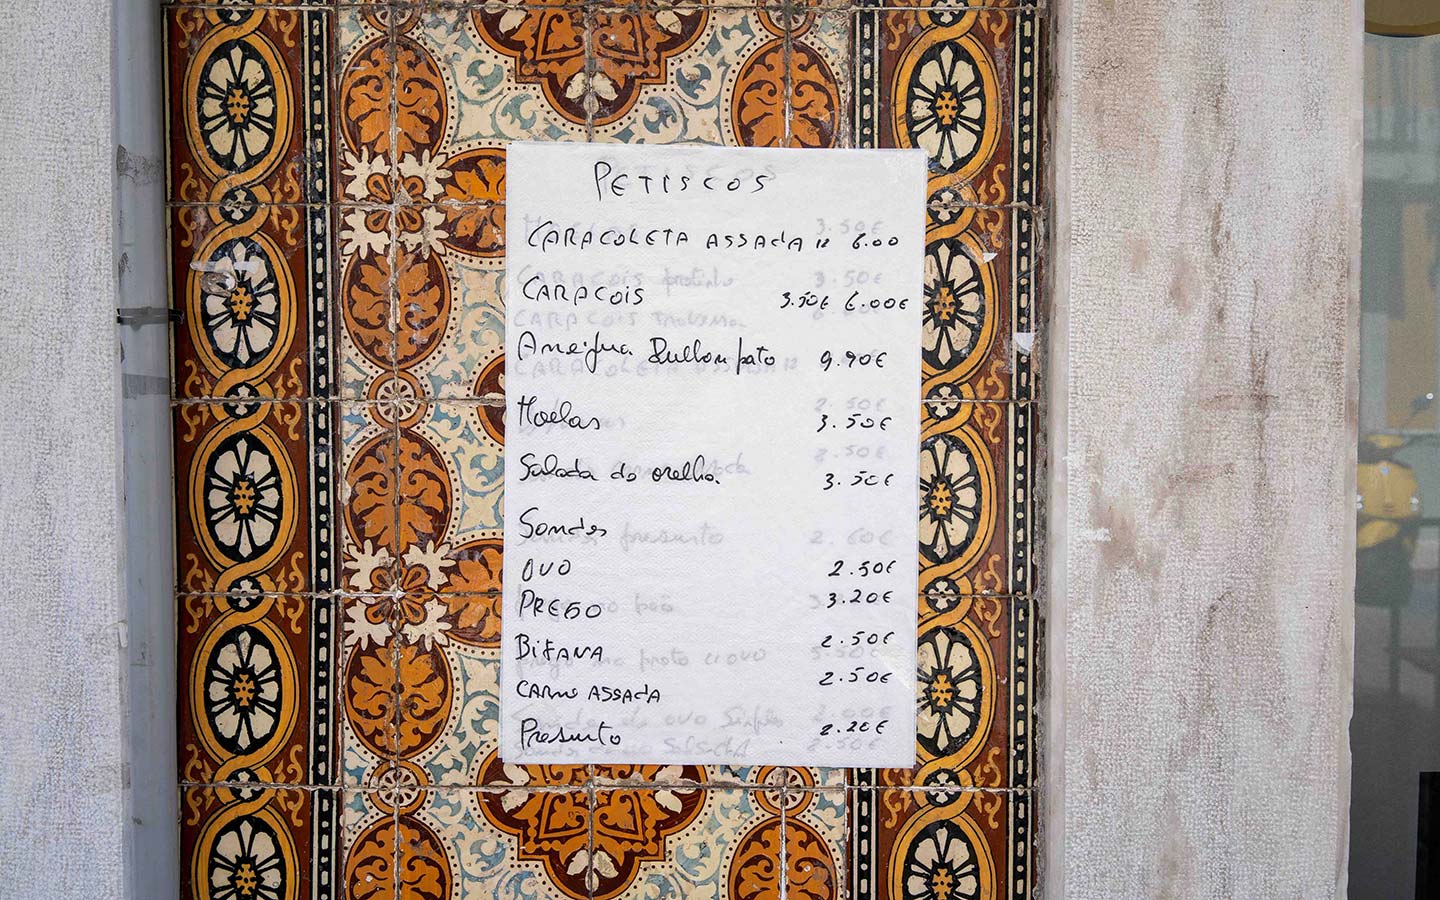 PETISCOS
CARACOLETA ASSADA 12 6.00
CARACOIS 3.50€ 6.00€
Ameijua Bulhom pato 9.90€
Moelas 3.50€
Salada do orelha. 3.50€
Sandes
OVO 2.50€
PREGO 3.20€
BifANA 2.50€
CARNE ASSADA 2.50€
Presunto 2.20€